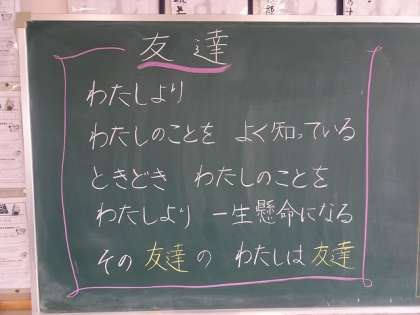 友達
わたしより
わたしのことを よく知っている
ときどき わたしのことを
わたしより 一生懸命になる
その 友達の わたしは 友達